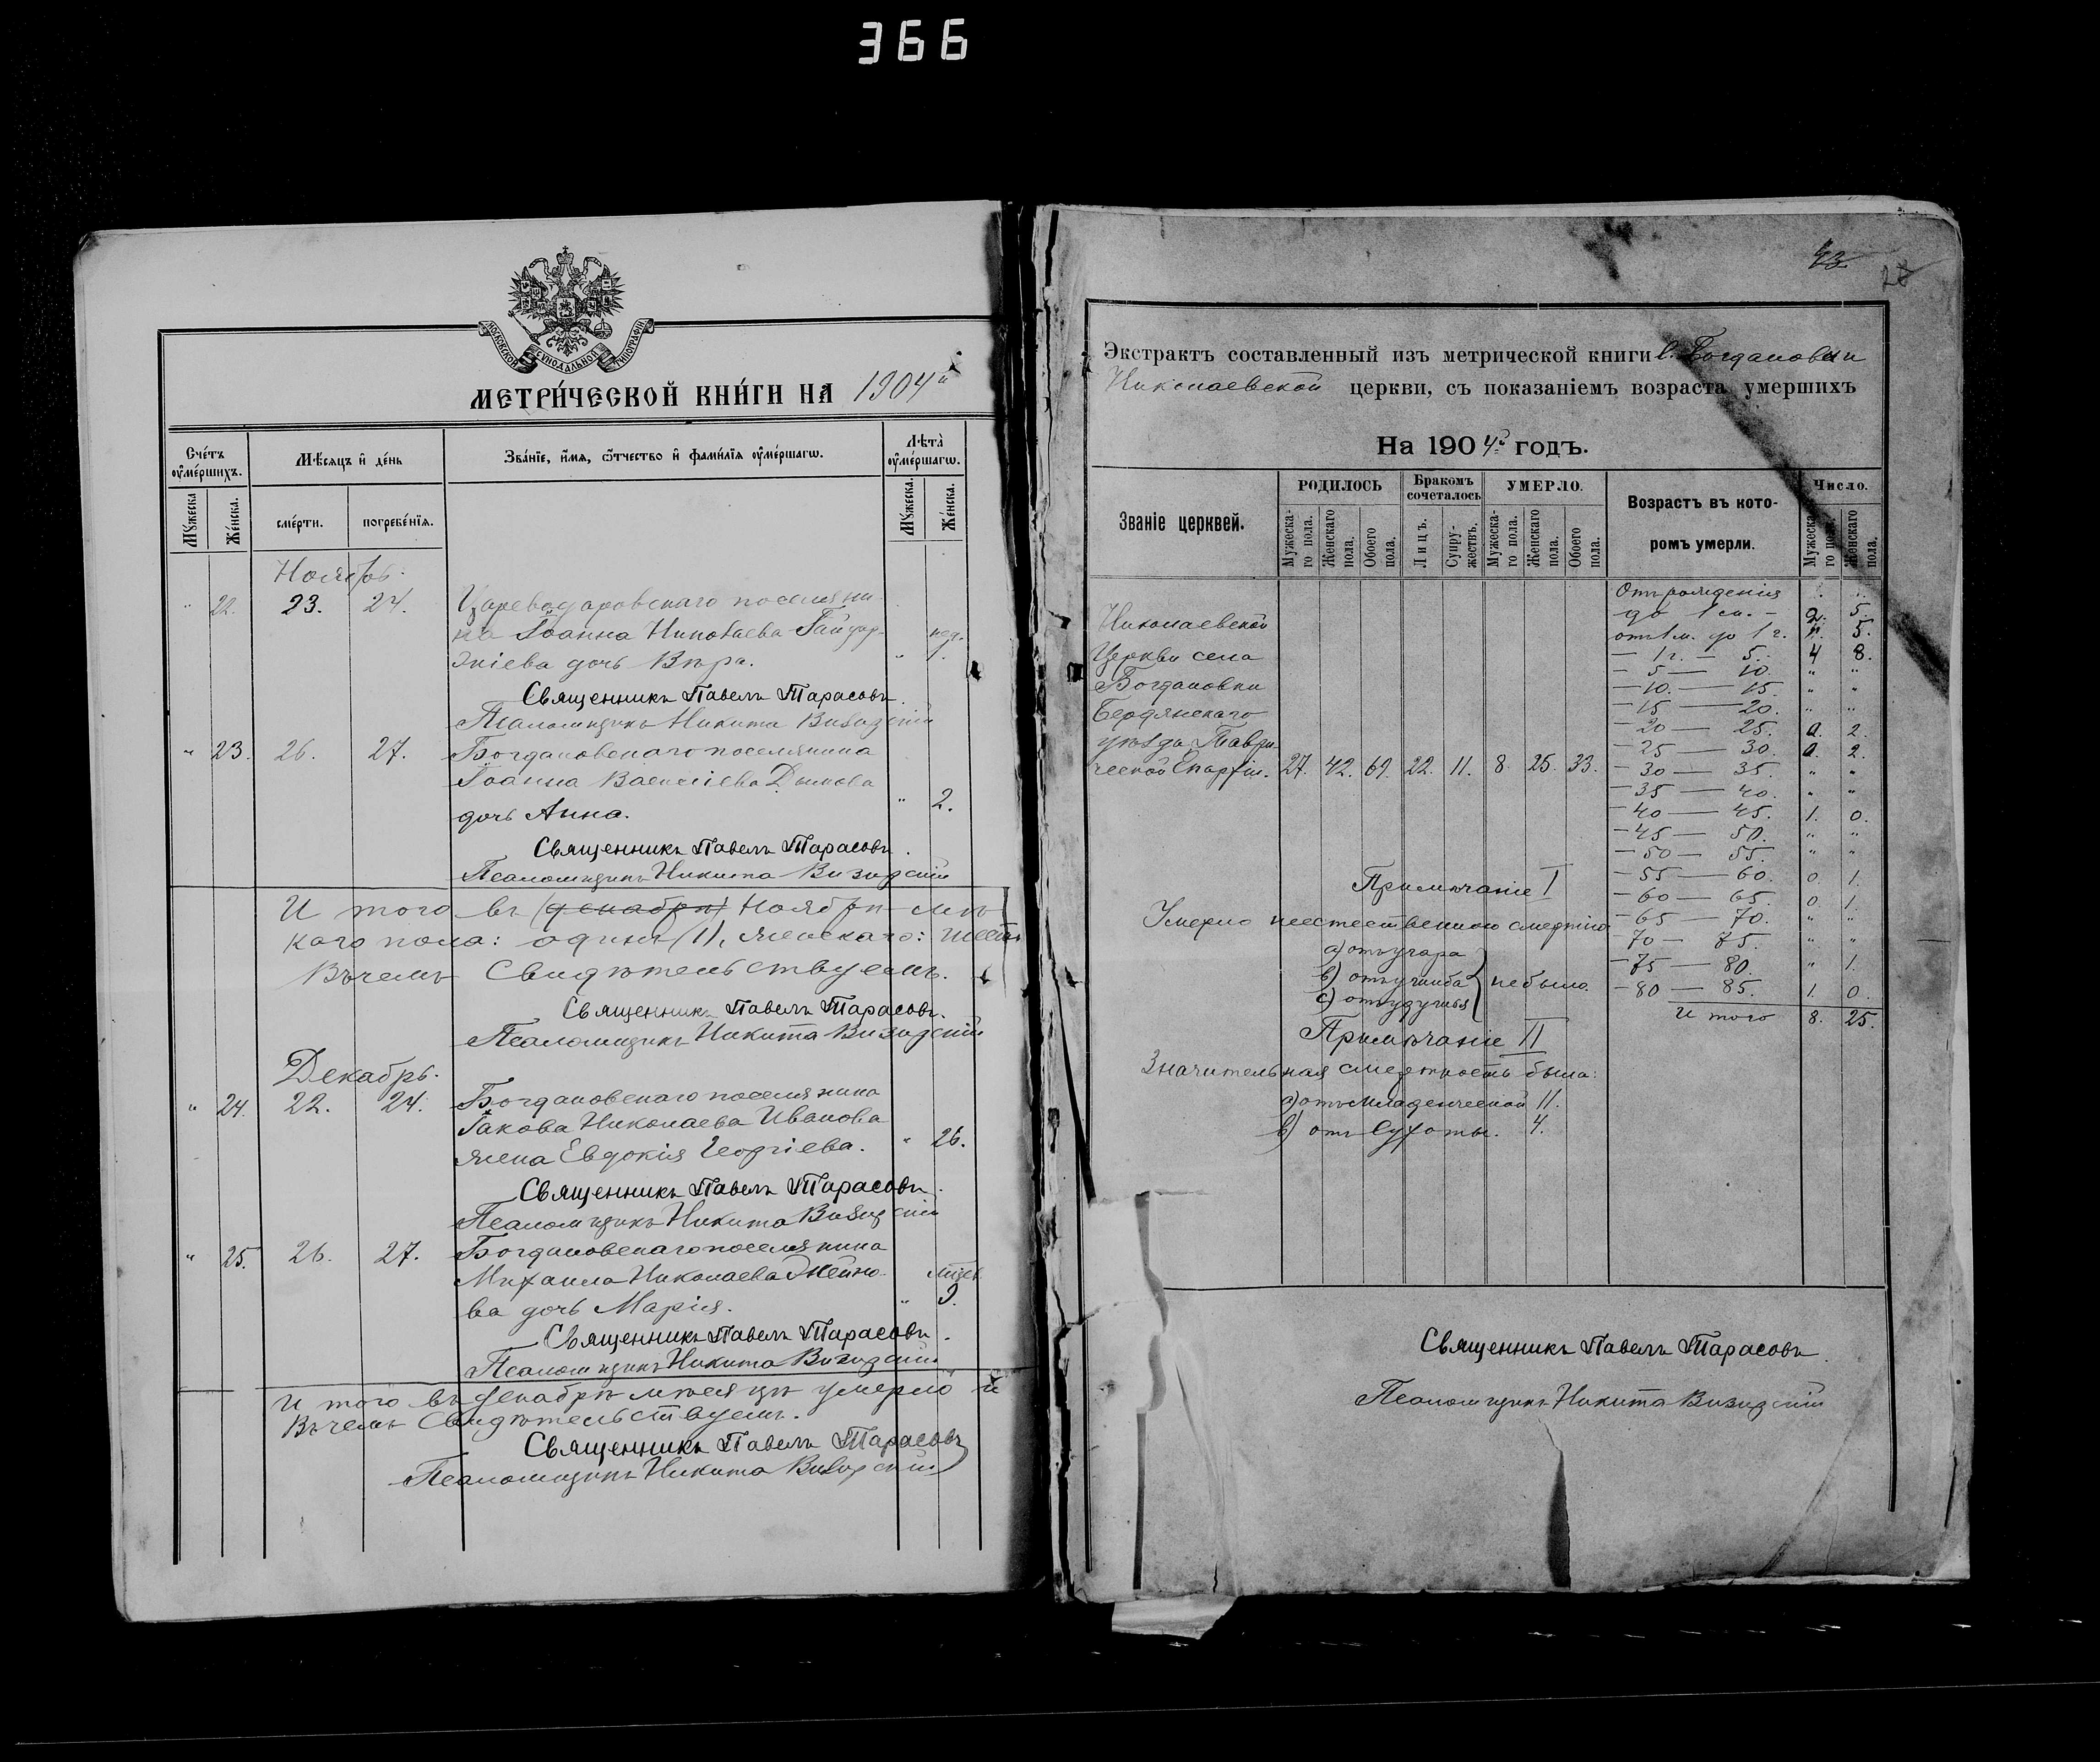 366
МОСКОВСКОЙ СУНОДАЛЬНОЙ ТИПОГРАФІИ
МЕТРИ́ЧЕСКОЙ КНИ́ГИ НА 1904й
Сче́тъ ᲂу҆ме́ршихъ.
Мѣ́сяцъ и҆ де́нь
Зва́нїе, и҆́мѧ, ѻ҆́тчество и҆ фами́лїѧ ᲂу҆ме́ршагѡ.
Лѣ́та ᲂу҆ме́ршагѡ.
Мꙋ́жеска.
Же́нска.
сме́рти.
погребе́нїѧ.
Мꙋ́жеска.
Же́нска.
Ноябрь.
" 22. 23. 24. Цареводаровскаго поселяни-
на Іоанна Николаева Гайдар- нед.
жіева дочь Вѣра. "
Священникъ Павелъ Тарасовъ.
Псаломщикъ Никита Визидскій
" 23. 26. 27. Богдановскаго поселянина
Іоанна Василіева Дымова
дочь Анна. " 2.
Священникъ Павелъ Тарасовъ.
Псаломщикъ Никита Визидскій
И того въ (декабрѣ) Ноябрѣ мѣ
каго пола: одинъ (1), женскаго: шесть
Въ чемъ Свидѣтельствуемъ.
Священникъ Павелъ Тарасовъ.
Псаломщикъ Никита Визидскій
Декабрь.
" 24. 22. 24. Богдановскаго поселянина
Іакова Николаева Иванова
жена Евдокія Георгіева. " 26.
Священникъ Павелъ Тарасовъ.
Псаломщикъ Никита Визидскій
" 25. 26. 27. Богдановскаго поселянина
Михаила Николаева Жейно-
ва дочь Марія. " 9.
Священникъ Павелъ Тарасовъ.
Псаломщикъ Никита Визидскій
И того въ декабрѣ мѣсяцѣ умерло
Въ чемъ Свидѣтельствуемъ.
Священникъ Павелъ Тарасовъ
Псаломщикъ Никита Визидскій
43
Экстрактъ составленный изъ метрической книги с. Богдановки
Николаевской церкви, съ показаніемъ возраста умершихъ
На 1904й годъ.
Званіе церквей.
РОДИЛОСЬ
Бракомъ сочеталось
УМЕРЛО.
Возрастъ въ кото-
ромъ умерли.
Число.
Мужеска-го пола.
Женскаго пола.
Обоего пола.
Лицъ.
Супру-жествъ.
Мужеска-го пола.
Женскаго пола.
Обоего пола.
Мужеска-го пола.
Женскаго пола.
Николаевской
Церкви села
Богдановки
Бердянскаго
уѣзда Таври-
ческой Епархіи. 27. 42. 69. 22. 11. 8. 25. 33.
Отъ рожденія
до 1 м. — 2. 5.
отъ 1 м. до 1 г. 5.
— 1 г. — 5. 4 8.
— 5 — 10. " "
— 10. — 15. " "
— 15 — 20. " "
— 20 — 25. 0. 2.
— 25 — 30. 0. 2.
— 30 — 35. " "
— 35 — 40. " "
— 40 — 45. 1. 0.
— 45 — 50. " "
— 50 — 55. " "
— 55 — 60. 0. 1.
— 60 — 65. 0. 1.
— 65 — 70. " "
— 70 — 75. " "
— 75 — 80. " 1.
— 80 — 85. 1. 0.
И того 8. 25.
Примѣчаніе I
Умерло неестественною смертію
а) отъ угара
в) отъ ушиба } не было.
с) отъ удушья
Примѣчаніе II
Значительная смертность была:
а) отъ младенческой 11.
в) отъ Сухоты. 4.
Священникъ Павелъ Тарасовъ.
Псаломщикъ Никита Визидскій